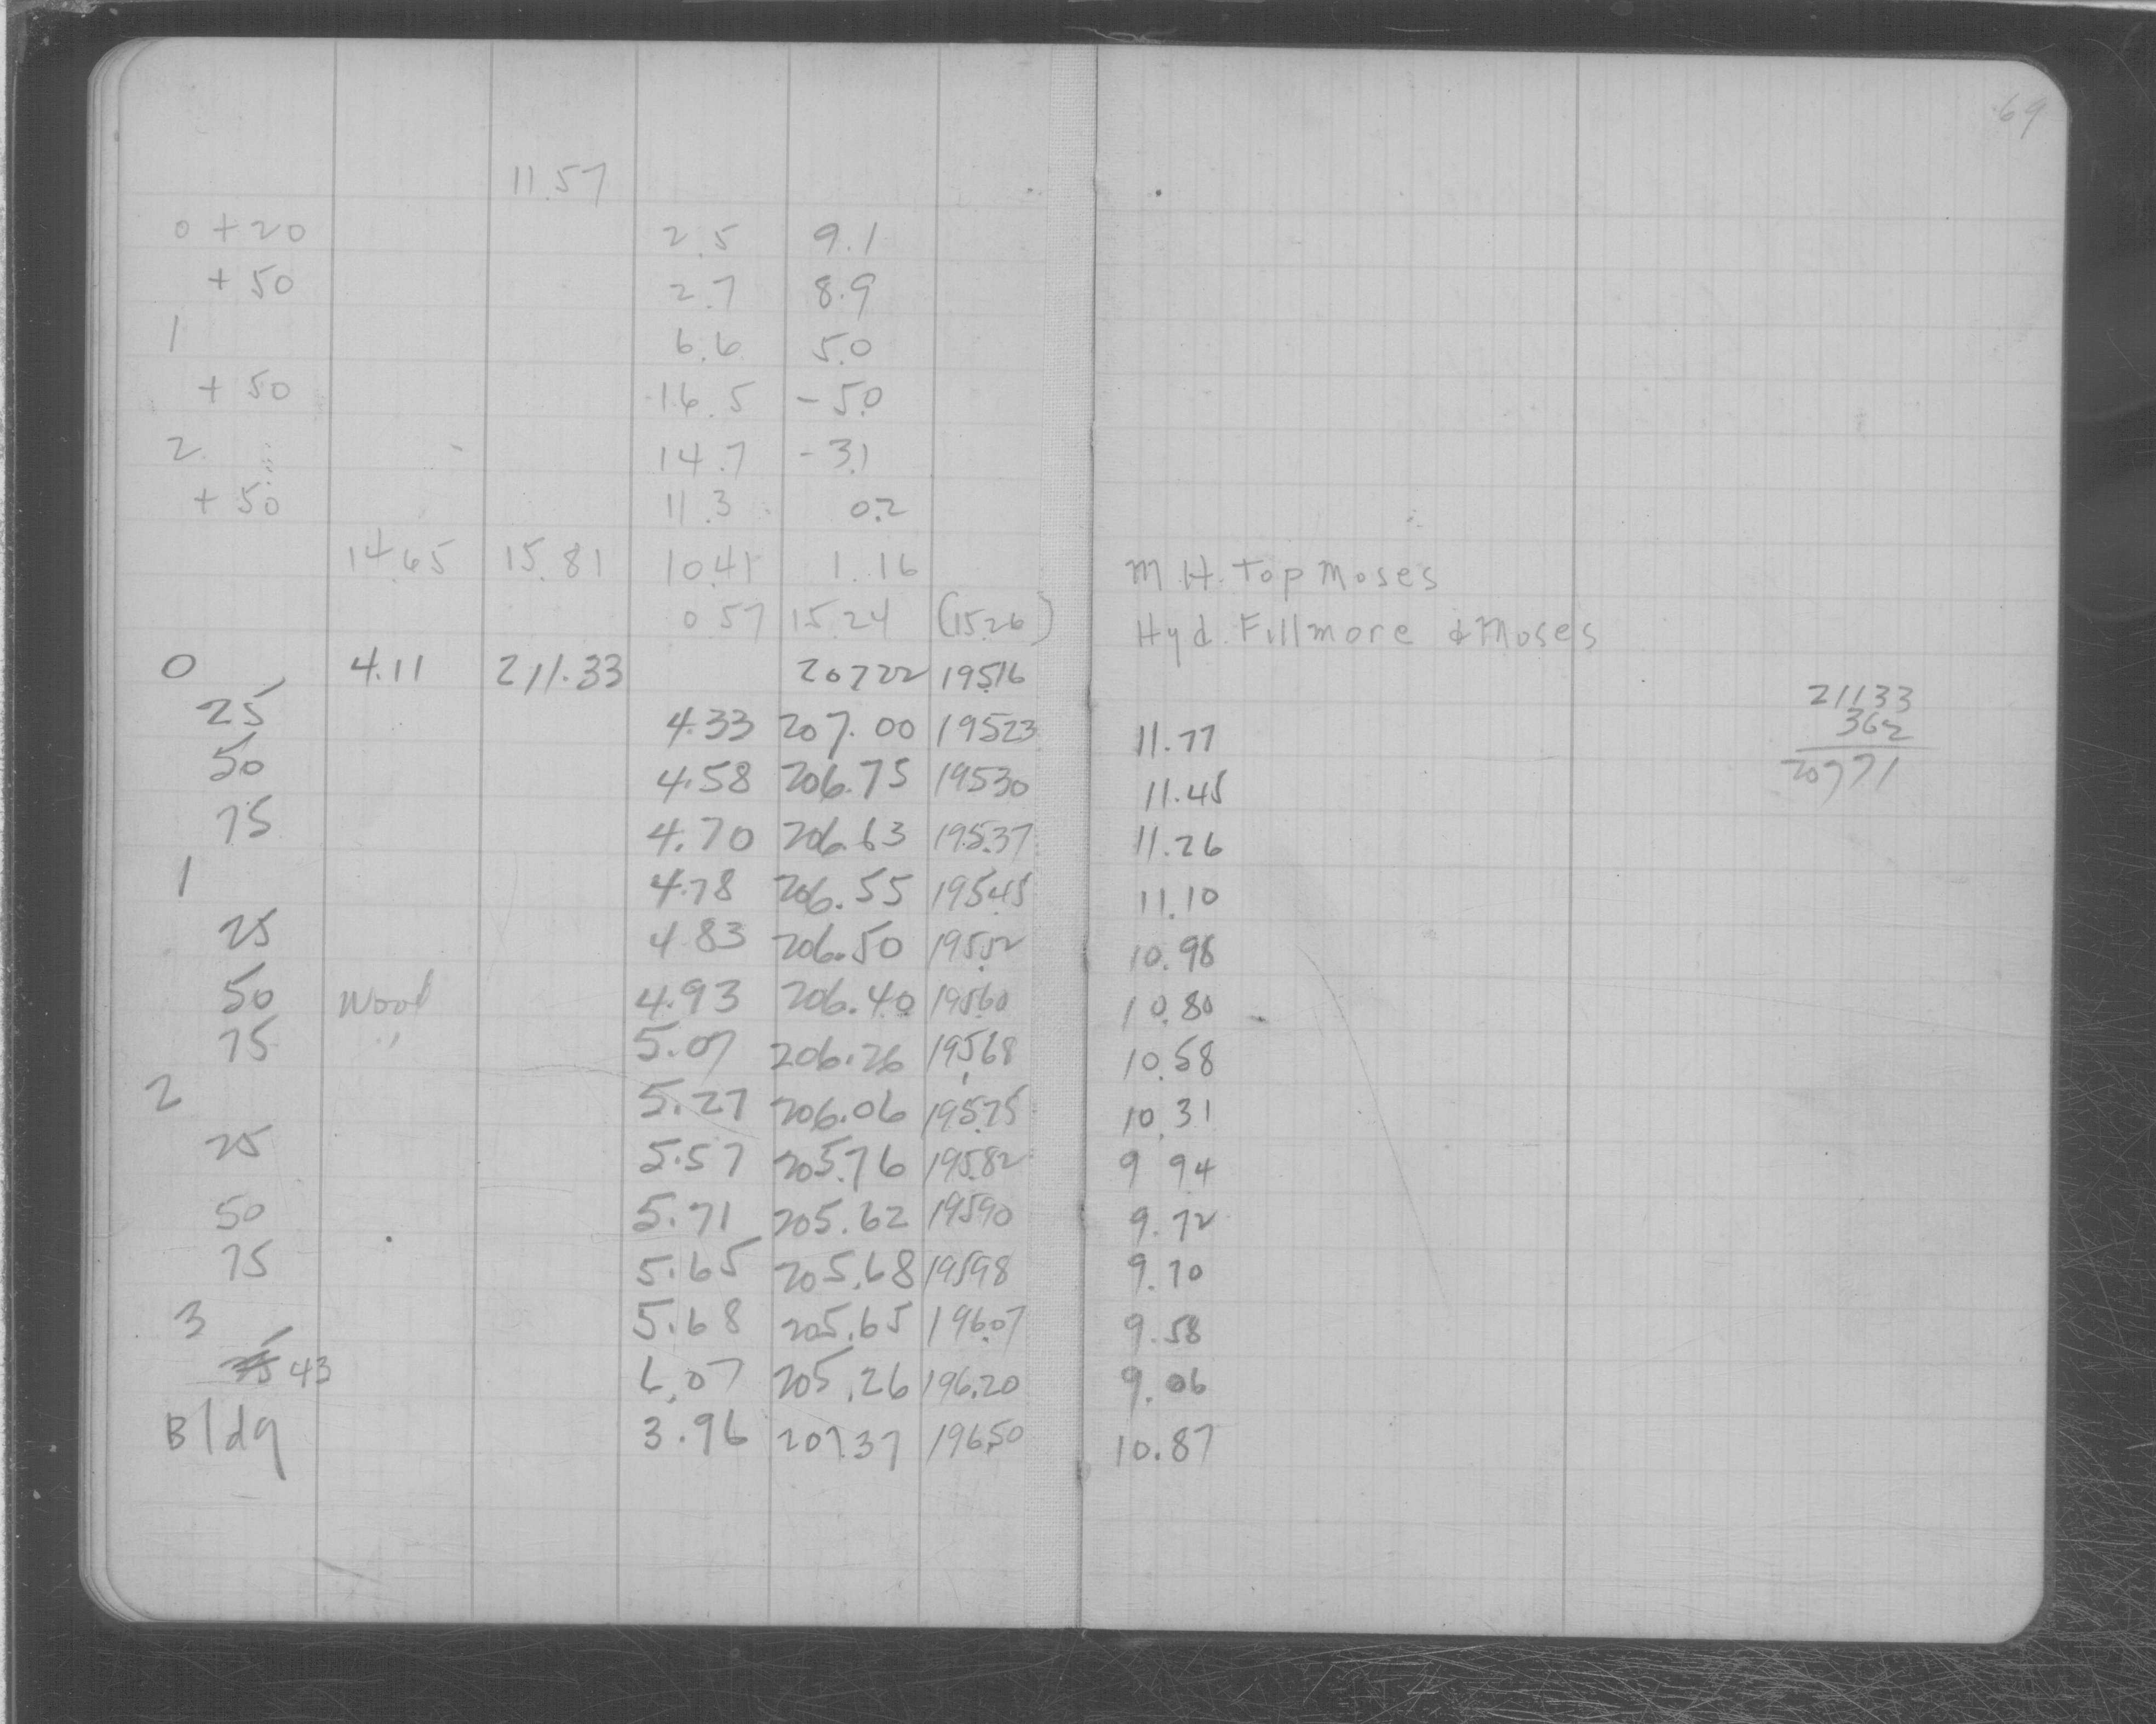 69
11.57
0 + 20 2.5 9.1
+ 50 2.7 8.9
1 6.6 5.0
+ 50 16.5 - 5.0
2 14.7 - 3.1
+ 50 11.3 0.2
14.65 15.81 10.41 1.16 M.H. Top Moses
0.57 15.24 (15.26) Hyd. Fillmore & Moses
0 4.11 211.33 207 22 195.16
25 4.33 207.00 195.23 11.77
50 4.58 206.75 195.30 11.45
75 4.70 206.63 195.37 11.26
1 4.78 206.55 195.45 11.10
25 4.83 206.50 195.52 10.98
50 Wood 4.93 206.40 195.60 10.80
75 " 5.07 206.26 195.68 10.58
2 5.27 206.06 195.75 10.31
25 5.57 205.76 195.82 9 94
50 5.71 205.62 195.90 9.72
75 5.65 205.68 195.98 9.70
3 5.68 205.65 196.07 9.58
43 6.07 205.26 196.20 9.06
Bldg 3.96 207.37 196.50 10.87
211 33
3 62
207 71